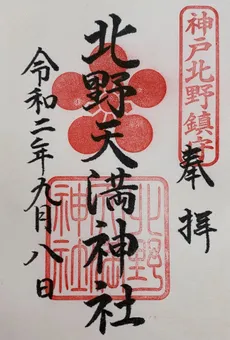 神戸北野鎮守
奉拝
北野天満神社
令和二年九月八日
北野
天満
神社